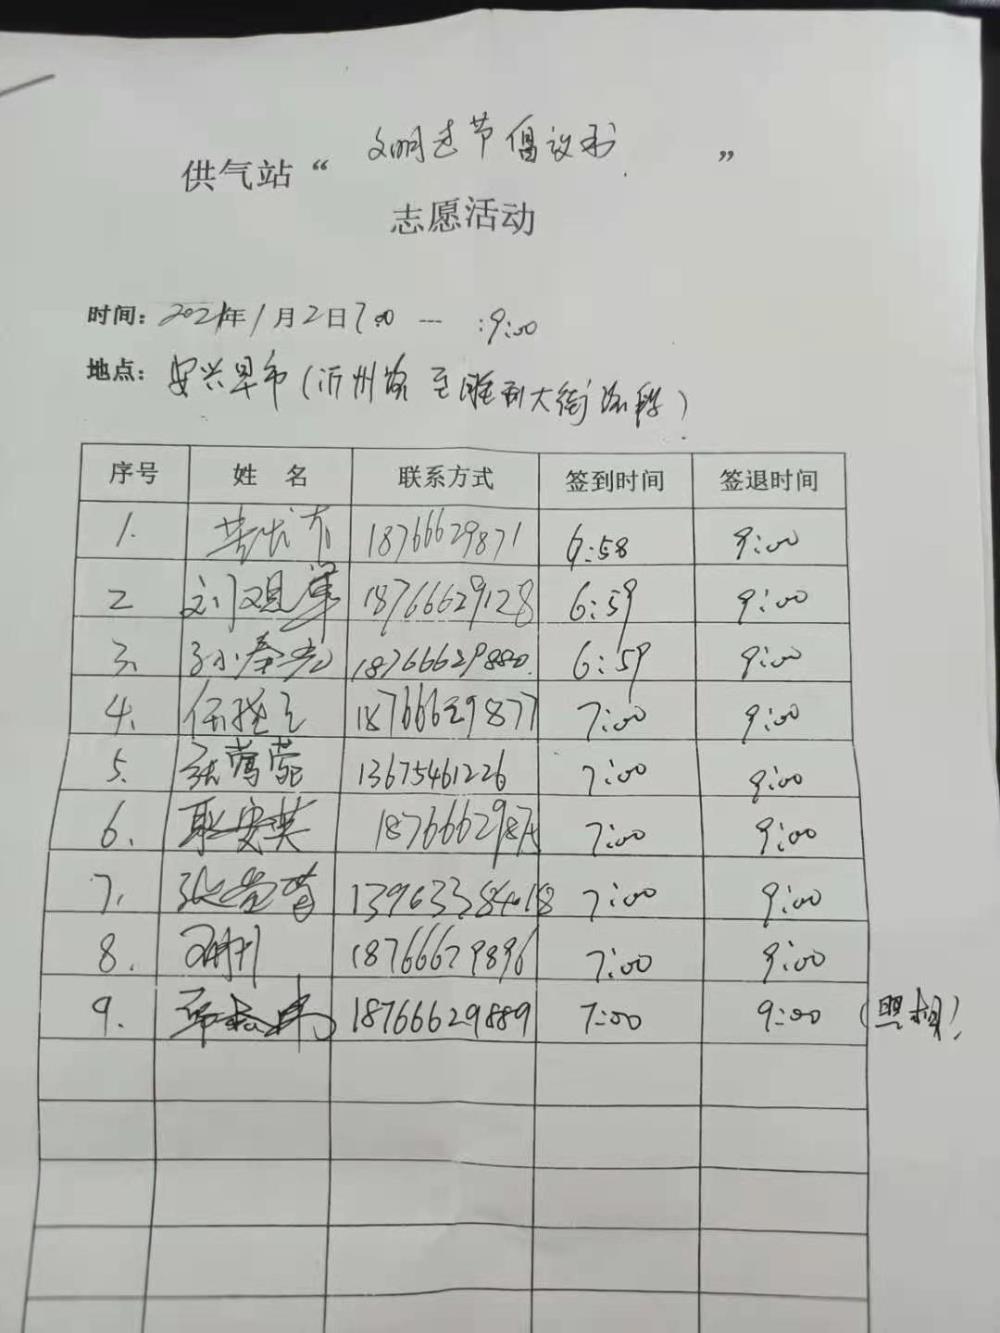 文明过节倡议书
供气站“ ”
志愿活动
时间：2021年1月2日7:00 — :9:00
地点：安兴早市（沂州路至胜利大街路段）
序号 姓 名 联系方式 签到时间 签退时间
1. 18766629871 6:58 9:00
2 18766629128 6:59 9:00
3. 孙秦光 18766629880. 6:59 9:00
4. 18766629877 7:00 9:00
5. 张莺莺 13675461226 7:00 9:00
6. 耿安英 7:00 9:00
7. 13963384018 7:00 9:00
8. 18766629896 7:00 9:00
9. 18766629889 7:00 9:00 （照相）